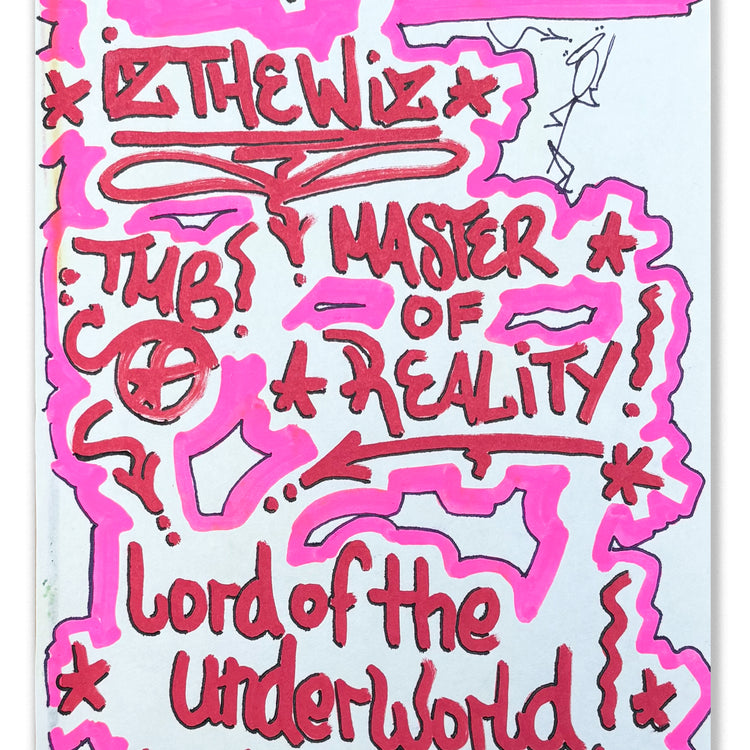 IZTHEWIZ
TMB! MASTER
OF
REALITY!
Lord of the
underWorld